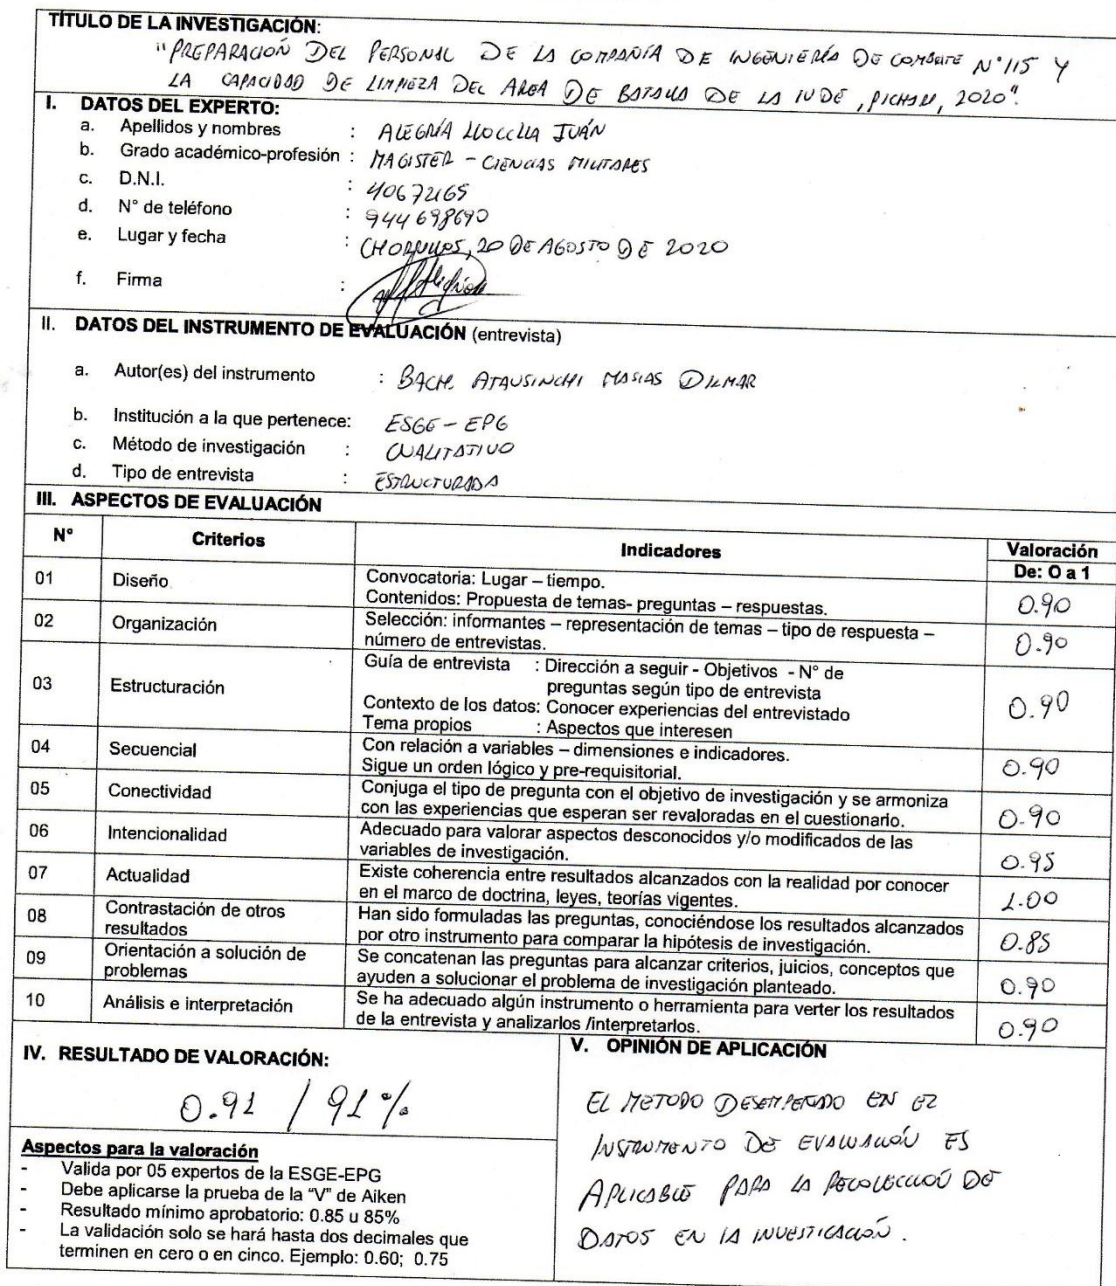 TÍTULO DE LA INVESTIGACIÓN:
"PREPARACIÓN DEL PERSONAL DE LA COMPAÑÍA DE INGENIERÍA DE COMBATE N°115 Y
LA CAPACIDAD DE LIMPIEZA DEL AREA DE BATALLA DE LA IV DE, PICHARI, 2020".
I. DATOS DEL EXPERTO:
a. Apellidos y nombres : ALEGRÍA LLOCLLA JUÁN
b. Grado académico-profesión : MAGISTER - CIENCIAS MILITARES
c. D.N.I. :
d. N° de teléfono : 944698690
e. Lugar y fecha : CHORRILLOS, 20 DE AGOSTO DE 2020
f. Firma :
II. DATOS DEL INSTRUMENTO DE EVALUACIÓN (entrevista)
a. Autor(es) del instrumento : BACH. ATAUSINCHI MASIAS DILMAR
b. Institución a la que pertenece: ESGE - EPG
c. Método de investigación : CUALITATIVO
d. Tipo de entrevista : ESTRUCTURADA
III. ASPECTOS DE EVALUACIÓN
N° Criterios Indicadores Valoración
De: O a 1
01 Diseño Convocatoria: Lugar – tiempo.
Contenidos: Propuesta de temas- preguntas – respuestas. 0.90
02 Organización Selección: informantes – representación de temas – tipo de respuesta –
número de entrevistas. 0.90
03 Estructuración Guía de entrevista : Dirección a seguir - Objetivos - N° de
preguntas según tipo de entrevista
Contexto de los datos: Conocer experiencias del entrevistado 0.90
Tema propios : Aspectos que interesen
04 Secuencial Con relación a variables – dimensiones e indicadores.
Sigue un orden lógico y pre-requisitorial. 0.90
05 Conectividad Conjuga el tipo de pregunta con el objetivo de investigación y se armoniza
con las experiencias que esperan ser revaloradas en el cuestionario. 0.90
06 Intencionalidad Adecuado para valorar aspectos desconocidos y/o modificados de las
variables de investigación. 0.95
07 Actualidad Existe coherencia entre resultados alcanzados con la realidad por conocer
en el marco de doctrina, leyes, teorías vigentes. 1.00
08 Contrastación de otros resultados Han sido formuladas las preguntas, conociéndose los resultados alcanzados
por otro instrumento para comparar la hipótesis de investigación. 0.85
09 Orientación a solución de problemas Se concatenan las preguntas para alcanzar criterios, juicios, conceptos que
ayuden a solucionar el problema de investigación planteado. 0.90
10 Análisis e interpretación Se ha adecuado algún instrumento o herramienta para verter los resultados
de la entrevista y analizarlos /interpretarlos. 0.90
IV. RESULTADO DE VALORACIÓN:
0.91 / 91%
Aspectos para la valoración
- Valida por 05 expertos de la ESGE-EPG
- Debe aplicarse la prueba de la "V" de Aiken
- Resultado mínimo aprobatorio: 0.85 u 85%
- La validación solo se hará hasta dos decimales que
terminen en cero o en cinco. Ejemplo: 0.60; 0.75
V. OPINIÓN DE APLICACIÓN
EL METODO DESEMPEÑADO EN EL
INSTRUMENTO DE EVALUACIÓN ES
APLICABLE PARA LA RECOLECCIÓN DE
DATOS EN LA INVESTIGACIÓN.